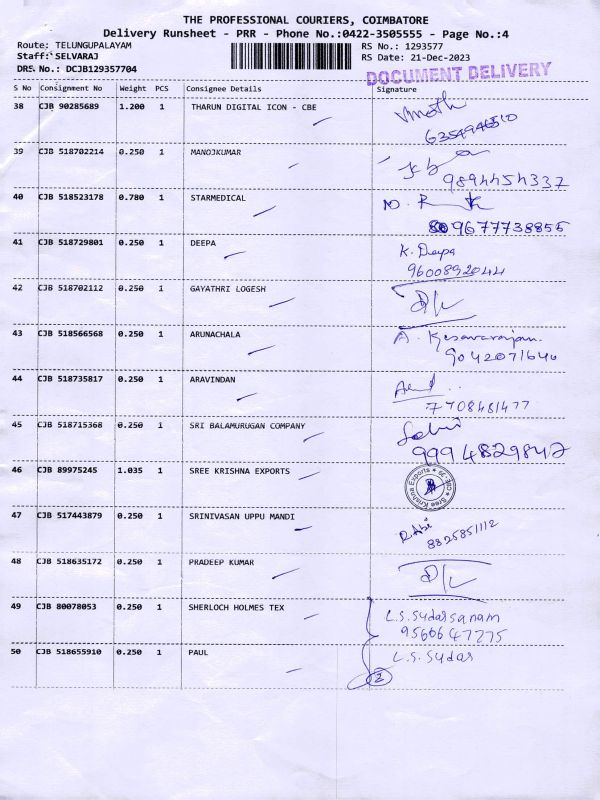 THE PROFESSIONAL COURIERS, COIMBATORE
Delivery Runsheet - PRR - Phone No.:0422-3505555 - Page No.:4
Route: TELUNGUPALAYAM
RS No.: 1293577
Staff: SELVARAJ
RS Date: 21-Dec-2023
DRS No.: DCJB129357704
DOCUMENT DELIVERY
S No Consignment No Weight PCS Consignee Details Signature
38 CJB 90285689 1.200 1 THARUN DIGITAL ICON - CBE
6354946510
39 CJB 518702214 0.250 1 MANOJKUMAR
9894454337
40 CJB 518523178 0.780 1 STARMEDICAL
9677738855
41 CJB 518729801 0.250 1 DEEPA K. Deepa
9600892044
42 CJB 518702112 0.250 1 GAYATHRI LOGESH
43 CJB 518566568 0.250 1 ARUNACHALA A. Kesavarajan.
9042071640
44 CJB 518735817 0.250 1 ARAVINDAN
7708481477
45 CJB 518715368 0.250 1 SRI BALAMURUGAN COMPANY
9994829842
46 CJB 89975245 1.035 1 SREE KRISHNA EXPORTS
Sree Krishna Exports
47 CJB 517443879 0.250 1 SRINIVASAN UPPU MANDI
8825851112
48 CJB 518635172 0.250 1 PRADEEP KUMAR
49 CJB 80078053 0.250 1 SHERLOCH HOLMES TEX L.S.Sudarsanam
9566647275
50 CJB 518655910 0.250 1 PAUL L.S. Sudar
2